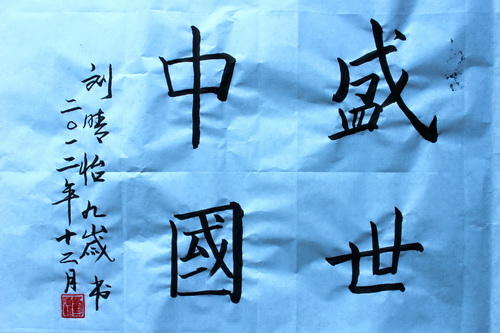 盛世
中國
刘晴怡九歲书
二〇一二年十二月